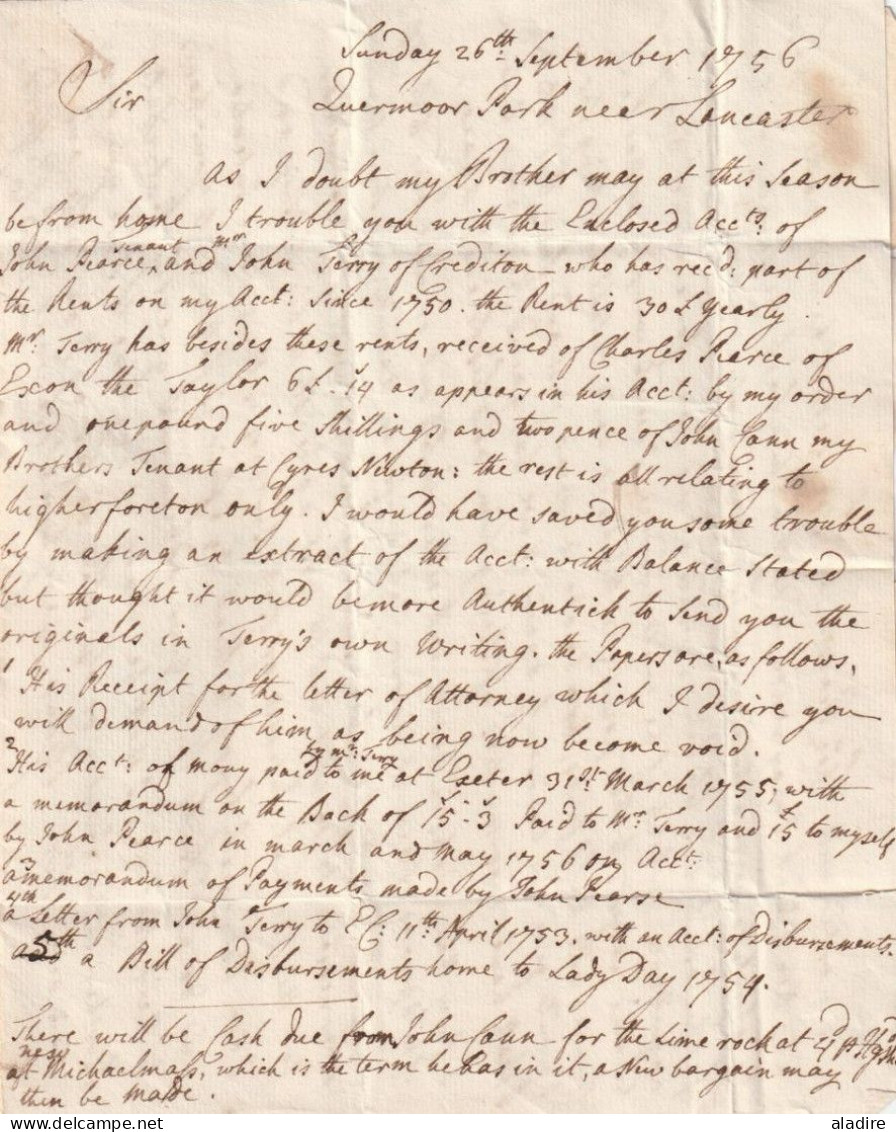 Sunday 26th September 1756
Sir Quermoor Park near Lancaster
As I doubt my Brother may at this Season
be from home I trouble you with the Enclosed Accts: of
John Pearce Tenant and Mr John Terry of Crediton who has recd: part of
the Rents on my Acct: Since 1750. the Rent is 30£ yearly.
Mr. Terry has besides these rents, received of Charles Pearce of
Exon the Taylor 6£-14s as appears in his Acct: by my order
and onepound five Shillings and twopence of John Cann my
Brothers Tenant at Cyres Newton: the rest is all relating to
higherforeton only. I would have saved you some trouble
by making an extract of the Acct: with Balance Stated
but thought it would be more Authentick to Send you the
originals in Terry's own Writing. the Papers are, as follows,
1 His Receipt for the letter of Attorney which I desire you
will demand of him as being now become void.
2 His Acct: of mony paid by Mr: Terry to me at Exeter 31st March 1755, with
a memorandum on the Back of £15-3s Paid to Mr Terry and £15 to myself
by John Pearce in march and May 1756 on Acct:
3 a memorandum of Payments made by John Pearse
4th a Letter from John Terry to EC: 11th: April 1753. with an Acct: of Disbursements.
5th a Bill of Disbursements home to Lady Day 1754.
There will be Cash due from John Cann for the Lime rock at 4d p
at next Michaelmass, which is the term he has in it, a New bargain may
then be made.
aladire